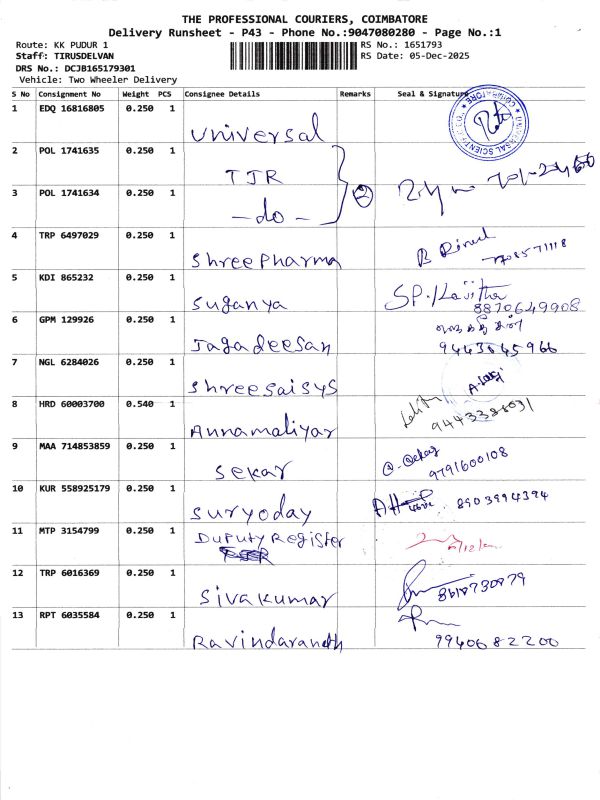 THE PROFESSIONAL COURIERS, COIMBATORE
Delivery Runsheet - P43 - Phone No.:9047080280 - Page No.:1
Route: KK PUDUR 1 RS No.: 1651793
Staff: TIRUSDELVAN RS Date: 05-Dec-2025
DRS No.: DCJB165179301
Vehicle: Two Wheeler Delivery
S No Consignment No Weight PCS Consignee Details Remarks Seal & Signature
1 EDQ 16816805 0.250 1 Universal
2 POL 1741635 0.250 1 TJR
3 POL 1741634 0.250 1 -do- 2
4 TRP 6497029 0.250 1 Shree Pharma
5 KDI 865232 0.250 1 Suganya SP. Kavitha 8870649908
6 GPM 129926 0.250 1 Jagadeesan 9443845966
7 NGL 6284026 0.250 1 Shreesaisys
8 HRD 60003700 0.540 1 Annamaliyar
9 MAA 714853859 0.250 1 Sekar 9791600108
10 KUR 558925179 0.250 1 Suryoday 8903994394
11 MTP 3154799 0.250 1 Duputy Register
12 TRP 6016369 0.250 1 Sivakumar
13 RPT 6035584 0.250 1 Ravindaranath 9940682200